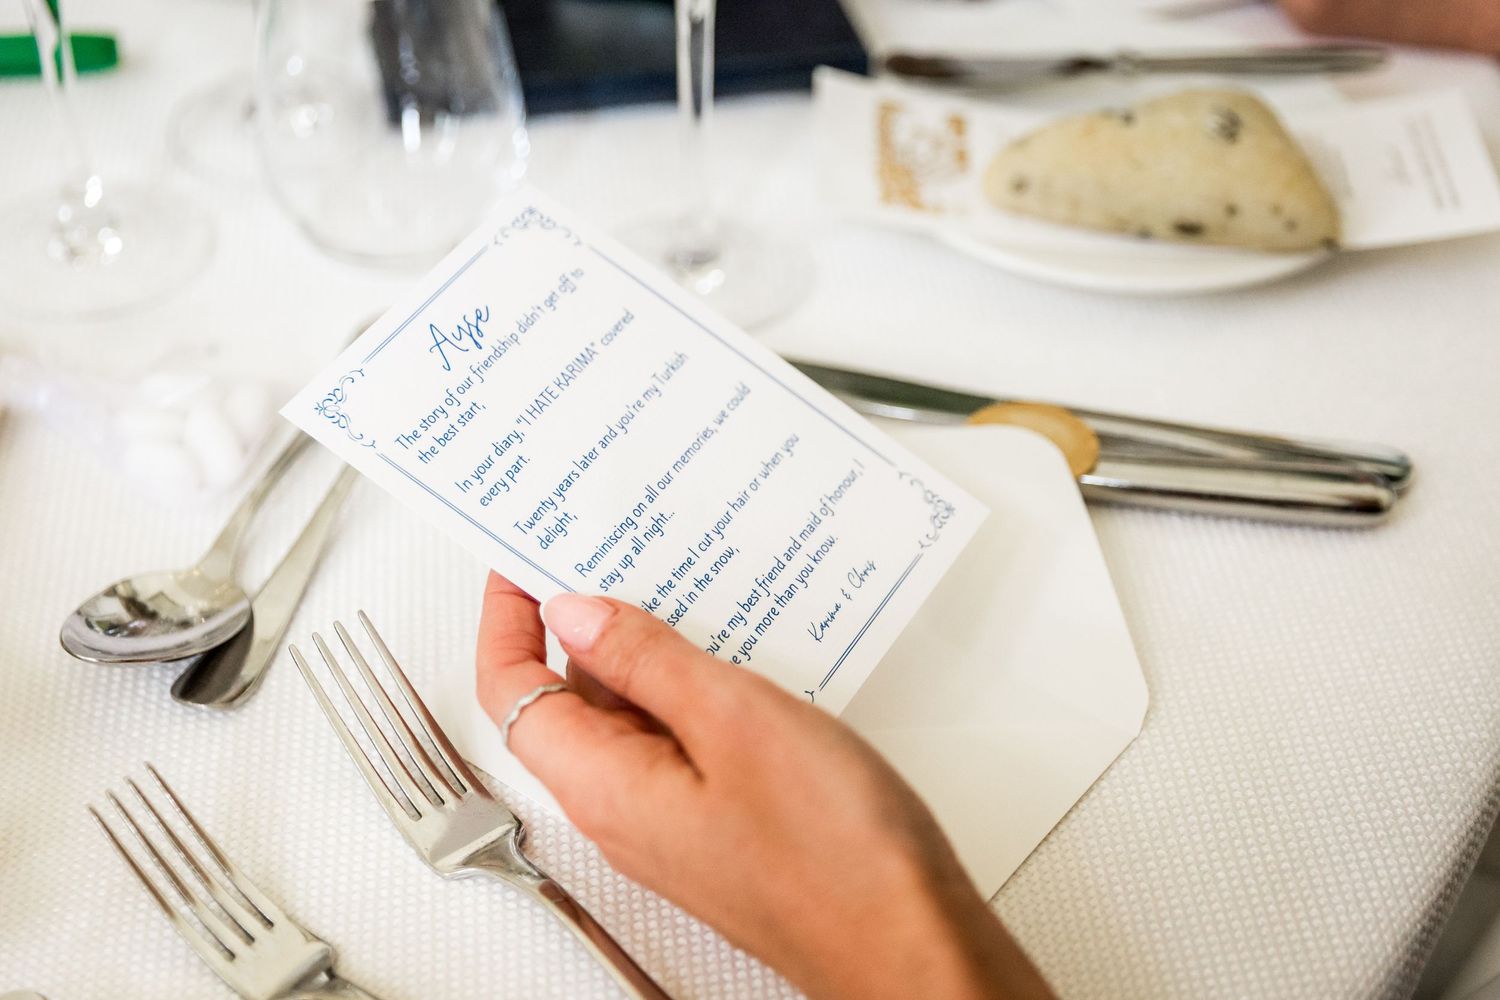 Ayse
The story of our friendship didn't get off to
the best start,
In your diary, "I HATE KARIMA" covered
every part.
Twenty years later and you're my Turkish
delight,
Reminiscing on all our memories, we could
stay up all night...
ike the time I cut your hair or when you
ssed in the snow,
ou're my best friend and maid of honour, I
e you more than you know.
Karima & Chris